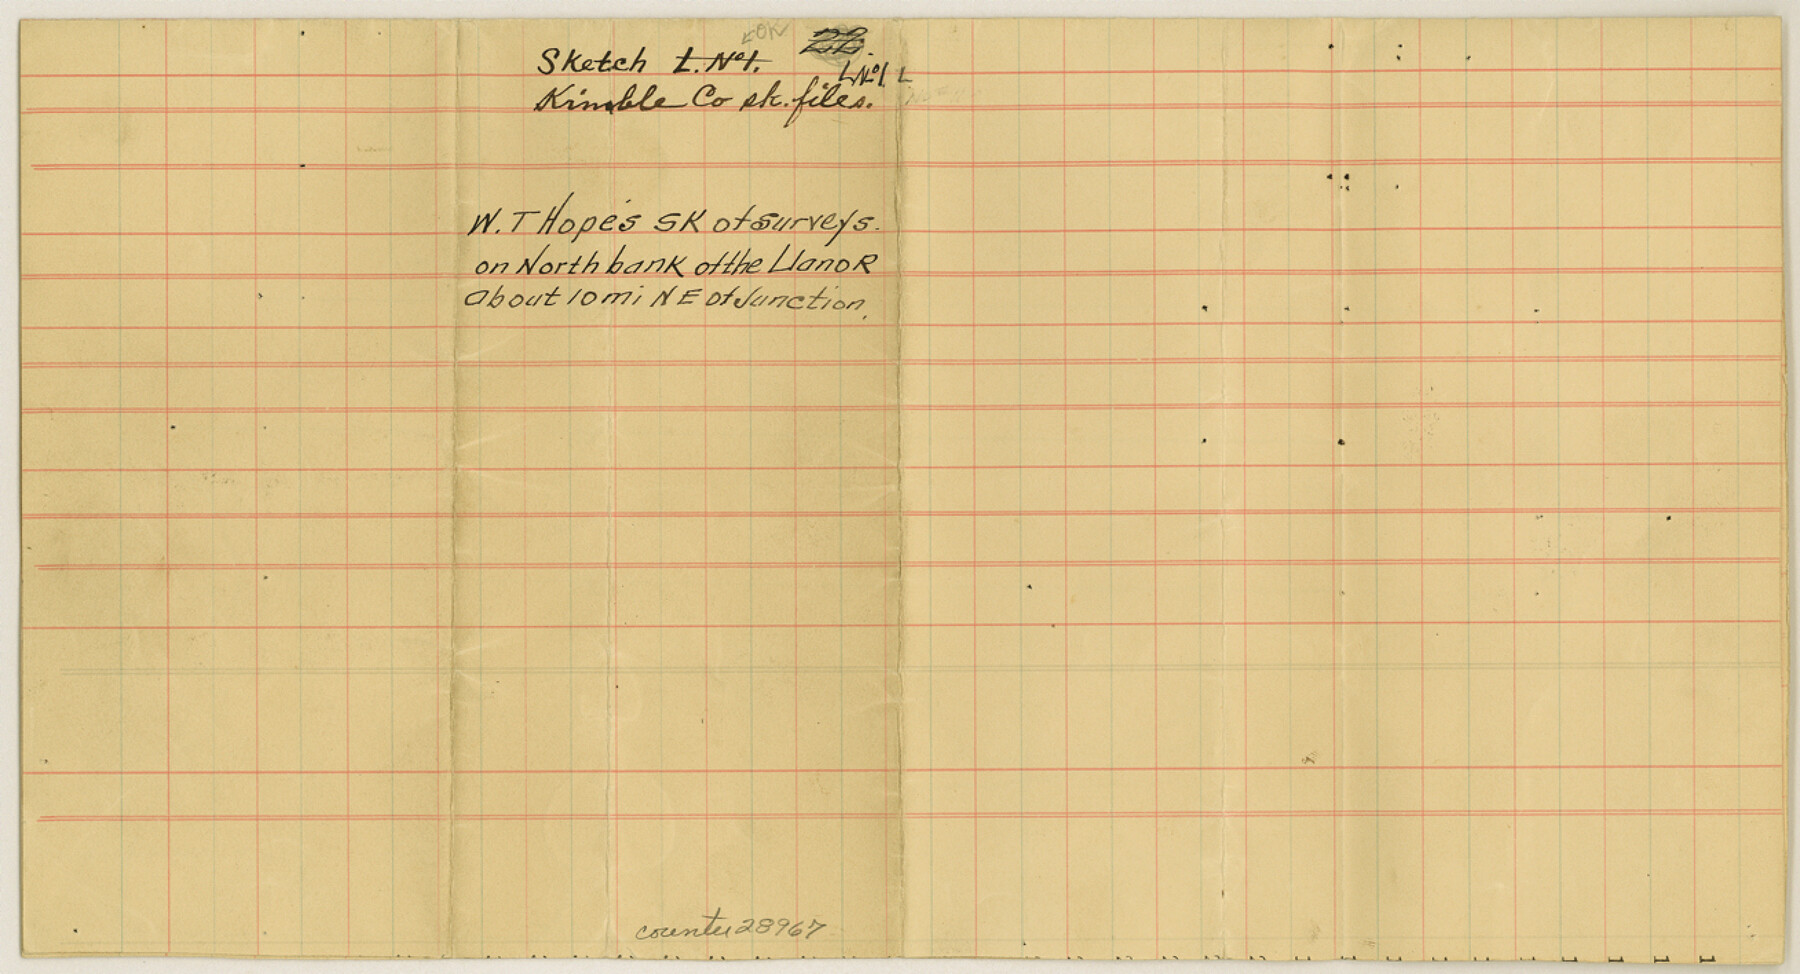 OK
Sketch L. No1. 22.
L No1 L
Kimble Co sk. files.
W. T Hope's SK of surveys.
on North bank of the Llano R
about 10 mi N E of Junction.
counter 28967